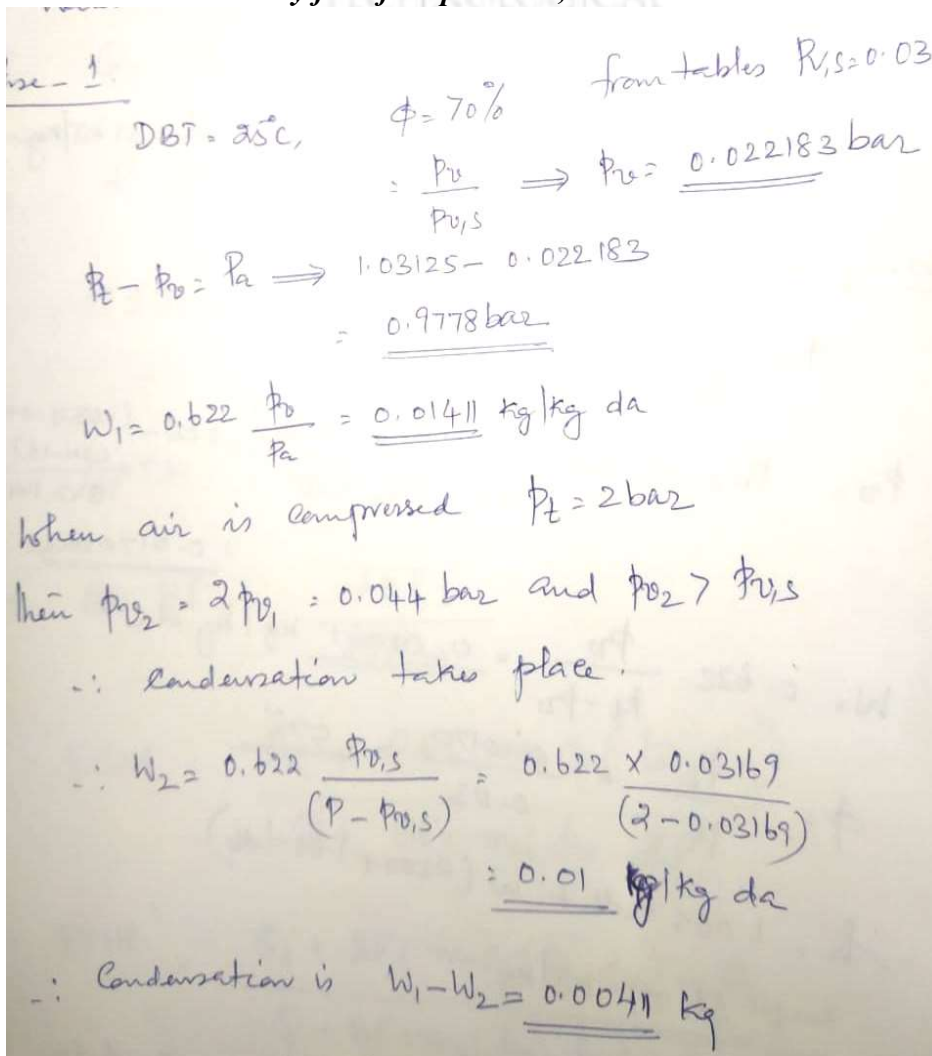 DBT = 25°C, φ = 70% from tables Pv,s = 0.03
= pv / pv,s ⇒ pv = 0.022183 bar
pt - pv = Pa ⇒ 1.03125 - 0.022183
= 0.9778 bar
W1 = 0.622 pv / pa = 0.01411 kg/kg da
When air is compressed pt = 2 bar
Then pv2 = 2 pv1 = 0.044 bar and pv2 > pv,s
∴ condensation takes place.
∴ W2 = 0.622 pv,s / (P - pv,s) = 0.622 × 0.03169 / (2 - 0.03169)
= 0.01 kg/kg da
∴ Condensation is W1 - W2 = 0.00411 kg